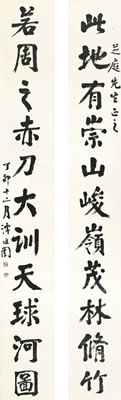 芝庭先生正之
此地有崇山峻嶺茂林脩竹
若周之赤刀大训天球河圖
丁卯十二月 谭延闿